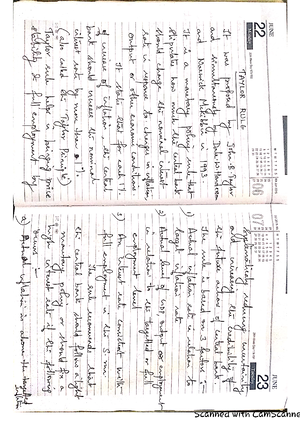 JUNE
22
TAYLOR RULE
It was proposed by John B. Taylor
and simultaneously by Dale W. Henderson
and Warwick McKibbin in 1993.
It is a monetary policy rule that
stipulates how much the central bank
should change the nominal interest
rate in response to changes in inflation,
output or other economic conditions.
It states that for each 1%
of increase of inflation the central
bank should increase the nominal
interest rate by more than 1%.
(also called the Taylor Principle)
Taylor rule helps in bringing price
stability & full employment by
JUNE
23
systematically reducing uncertainty
and increasing the credibility of
the future actions of central bank.
The rule is based on 3 factors :-
1) Actual inflation rate in relation to
target inflation rate
2) Actual level of output or employment
in relation to the targetted or full
employment level
3) An interest rate consistent with
full employment in the S-run
The rule recommends that
the central bank should follow a tight
monetary policy or should fix a
high interest rate if the following
occurs
a) inflation is above the
Scanned with CamScanner